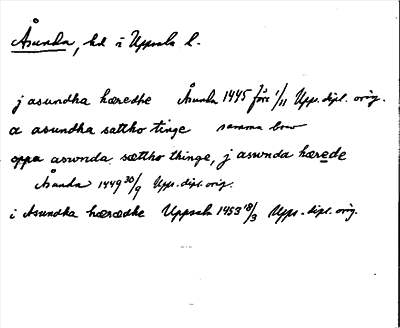 Åsunda, hd i Uppsala l.
j asundha hæredhe Åsunda 1445 före 1/11 Upps. dipl. orig.
a asundha sattho tinge samma brev
oppa aswnda sættho thinge, j aswnda hærede
Åsunda 1449 30/9 Upps. dipl. orig.
i Asundha hæradhe Uppsala 1453 18/3 Upps. dipl. orig.